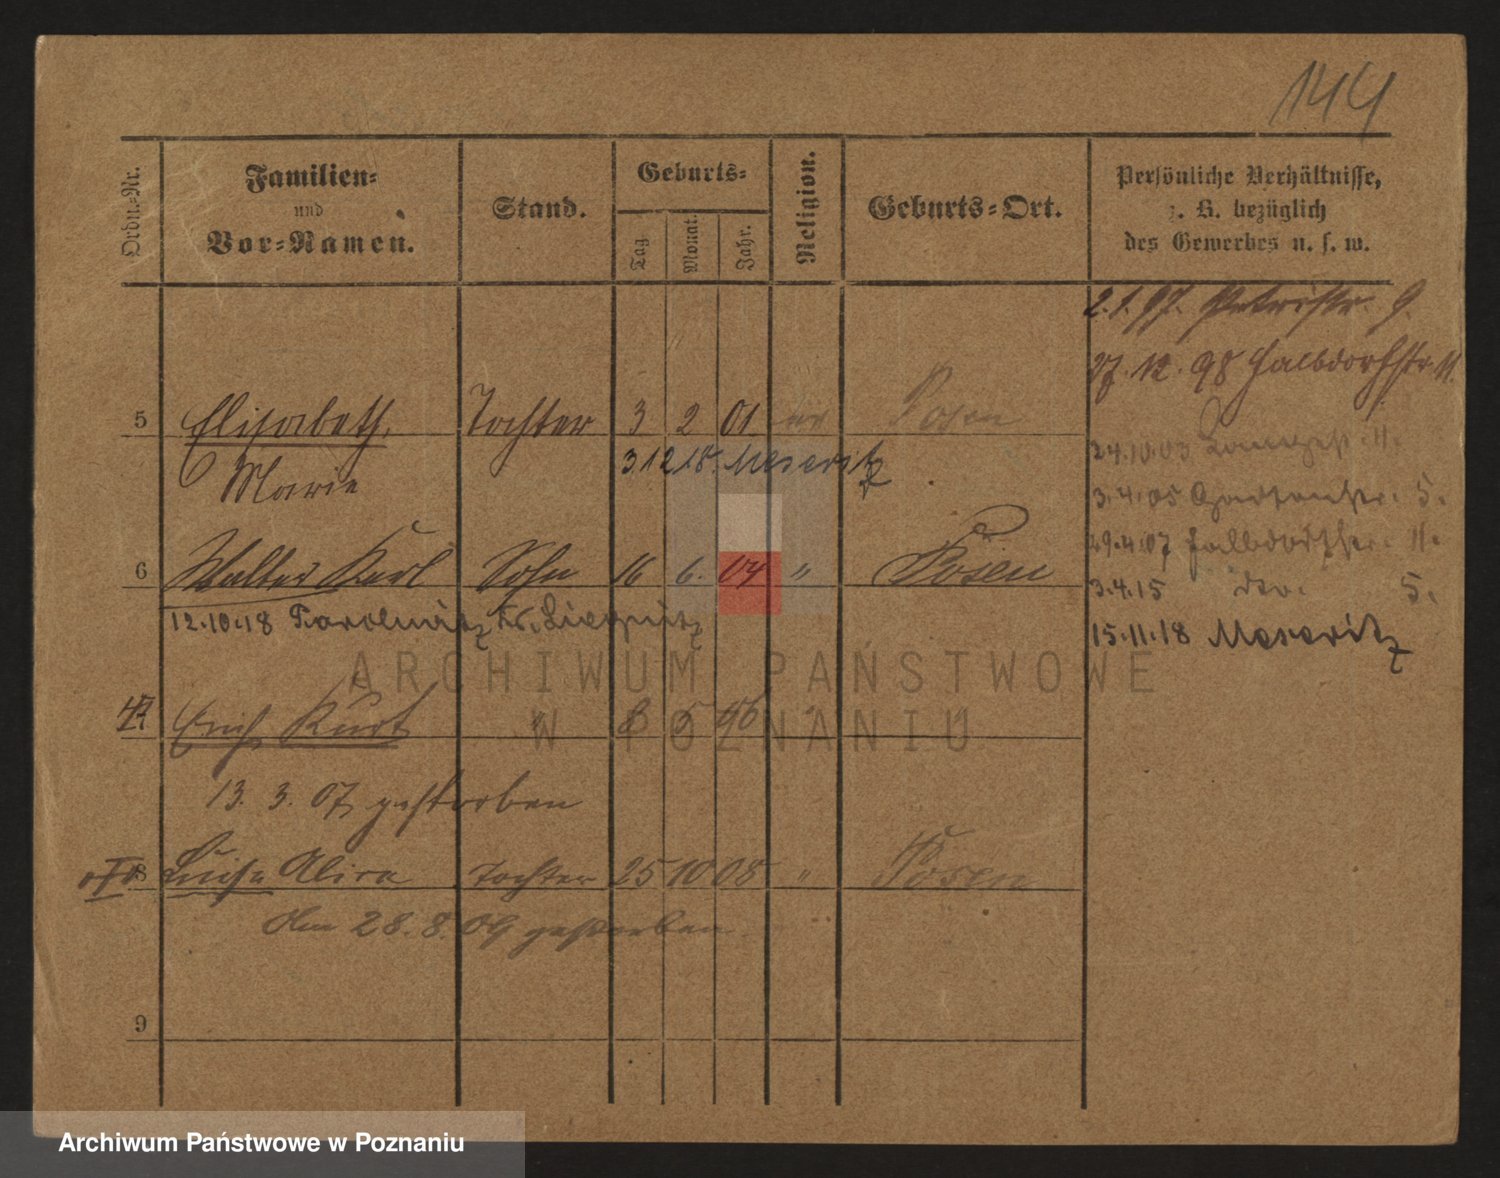 144
Ordn.-Nr.
Familien-
und
Vor-Namen.
Stand.
Geburts-
Tag
Monat.
Jahr.
Religion.
Geburts-Ort.
Persönliche Verhältnisse,
z. B. bezüglich
des Gewerbes u. s. w.
2.1.97. Petristr. 9.
27.12.98 Halbdorfstr. 11.
5 Elisabeth Tochter 3 2 01 Posen
24.10.03 11.
Marie 3 12 18. Meseritz
3.4.05 Gartenstr. 5.
29.4.07 Halbdorfstr. 11.
6 Walter Karl Sohn 16 6. 04 " Posen
3.4.15 5.
12.10.18 Kr. Liegnitz
15.11.18 Meseritz
ARCHIWUM PAŃSTWOWE
W POZNANIU
Erich Kurt " 8 5 " "
13. 3. 07 gestorben
8 Luise Tochter 25 10 08 " Posen
Am 28.8.09 gestorben.
9
Archiwum Państwowe w Poznaniu